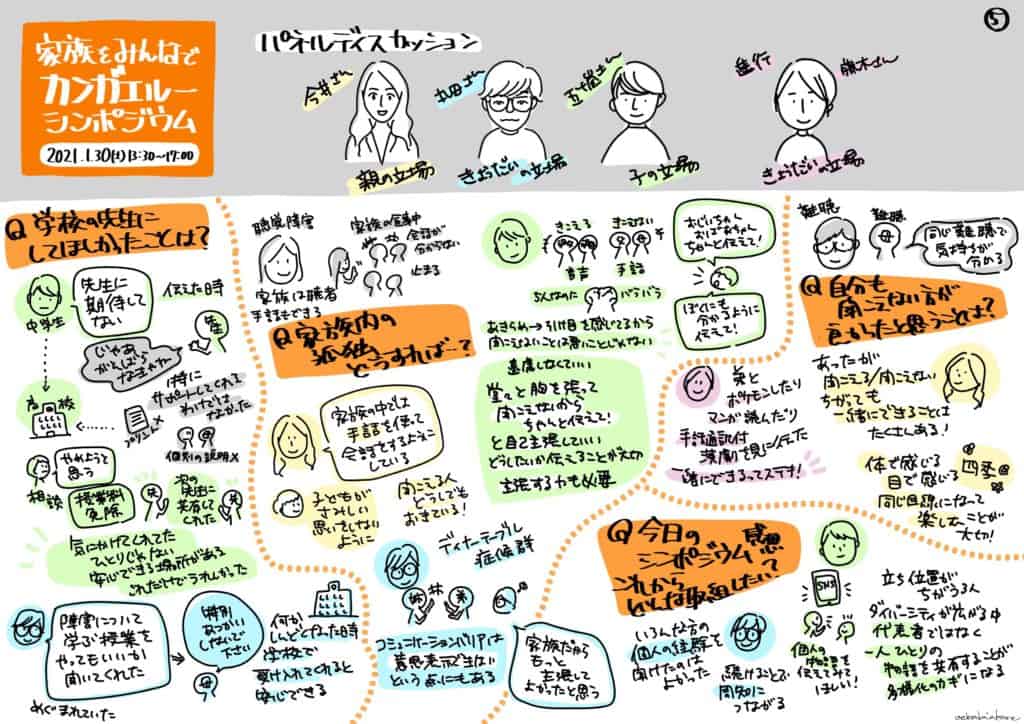 家族をみんなで
カンガエルー
シンポジウム
2021.1.30(土)13:30〜17:00
パネルディスカッション
5
今井さん
丸田さん
五十嵐さん
進行
藤木さん
親の立場
きょうだいの立場
子の立場
きょうだいの立場
Q 学校の先生に
してほしかったことは?
中学生
先生に
期待して
ない
伝えた時
先生
じゃあ
がんばら
なきゃね
特に
サポートしてくれる
わけでは
なかった
高校
プリント×
個別の説明×
やめようと
思う
相談
授業料
免除
次の
先生に
共有して
くれた
気にかけてくれてた
ひとりじゃない
安心できる場所がある
これだけでうれしかった
障害について
学ぶ授業を
やってもいいか
聞いてくれた
めぐまれていた
特別
あつかい
しないで
下さい
何か
しんどくなった時
学校で
受け入れてくれると
安心できる
聴覚障害
家族は聴者
手話もできる
家族の食事中
会話が
分からない
止まる
Q 家族内の
孤独
どうすれば…?
家族の中では
手話を使って
会話をするように
している
子どもが
さみしい
思いをしない
ように
聞こえる人
どうしでも
おきている!
ディナーテーブル
症候群
コミュニケーションバリアは
意思表示で生じない
という点にもある
家族だから
もっと
主張して
よかったと思う
きこえる
きこえない
音声
手話
5人なのに
バラバラ
おじいちゃん
おばあちゃん
ちゃんと伝えて!
ぼくにも
分かるように
伝えて!
あきらめ→引け目を感じてるから
聞こえないことは悪いことじゃない
遠慮しなくていい
堂々と胸を張って
聞こえないから
ちゃんと伝えて!
と自己主張していい
どうしたいか伝えることが大切
主張する力も必要
難聴
難聴
同じ難聴で
気持ちが
分かる
Q 自分も
聞こえない方が
良かったと思うことは?
弟と
ポケモンしたり
マンガ読んだり
手話通訳付
演劇を見に行った
一緒にできるってステキ!
あったが
聞こえる/聞こえない
ちがっても
一緒にできることは
たくさんある!
体で感じる
目で感じる
四季
同じ目線になって
楽しむことが
大切!
Q 今日の
シンポジウム感想
これから
どんな取組したい?
いろんな方の
個人の経験を
聞けたのは
よかった
続けることで
周知に
つながる
SNS
個人の
物語を
伝えてみて
ほしい!
立ち位置が
ちがう3人
ダイバーシティが広がる中
代表者ではなく
一人ひとりの
物語を共有することが
多様化のカギになる